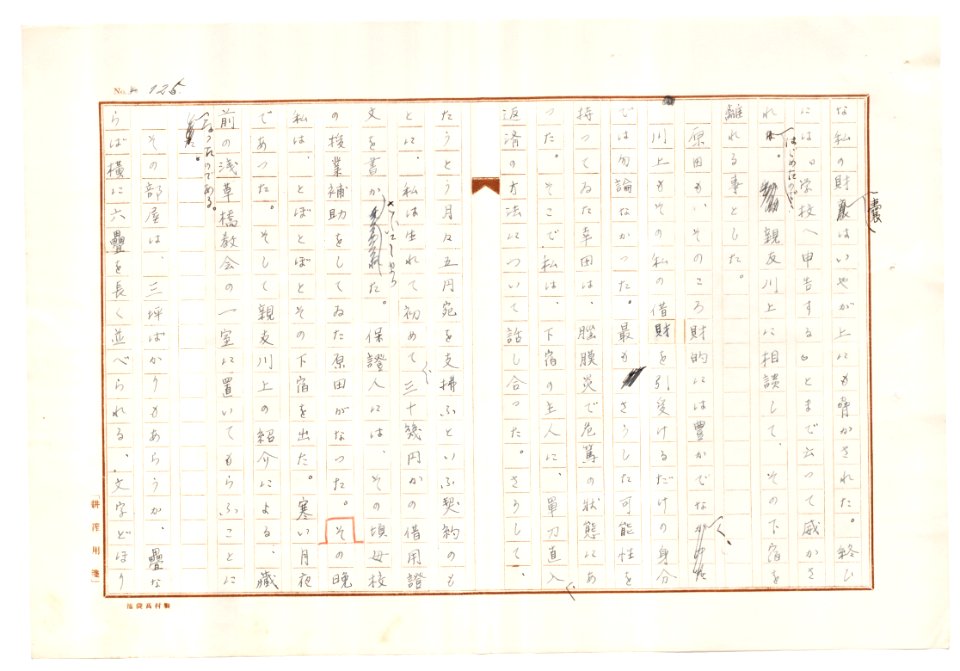 No. 125
な私の財嚢はいやが上にも脅かされた。終ひ
には、学校へ申告する。とまで云つて威かさ
れはじめたので、親友川上に相談して、その下宿を
離れる事とした。
原田もいそのころ財的には豊かでなく、
川上もその私の借財を引受けるだけの身分
では勿論なかつた。最もさうした可能性を
持つてゐた幸田は、脳膜炎で危篤の状態にあ
つた。そこで私は、下宿の主人に、単刀直入
返済の方法について話し合つた。さうして、
たうとう月々五円宛を支払ふといふ契約のも
とに、私は生れて初めて三十幾円かの借用證
文を書かされた。保證人には、その頃母校
の授業補助をしてゐた原田がなつた。その晩
私は、とぼとぼとその下宿を出た。寒い月夜
であつた。そして親友川上の紹介による、蔵
前の浅草橋教会の一室に置いてもらふことに
なつたのである。
その部屋は、三坪ばかりもあらうか、疊な
らば横に六疊を長く並べられる、文字どほり
耕淫用箋